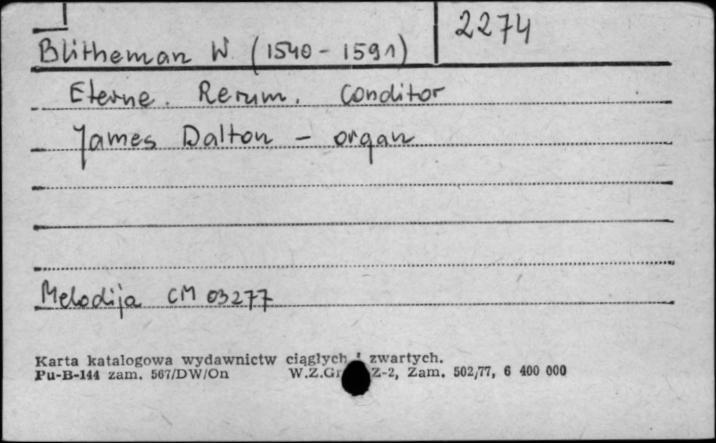 2274
Blitheman W. (1540 - 1591)
Eterne. Rerum. Conditor
James Dalton - organ
Melodija CM 03277
Karta katalogowa wydawnictw ciągłych i zwartych.
Pu-B-144 zam. 567/DW/On W.Z.Gr Z-2, Zam. 502/77, 6 400 000